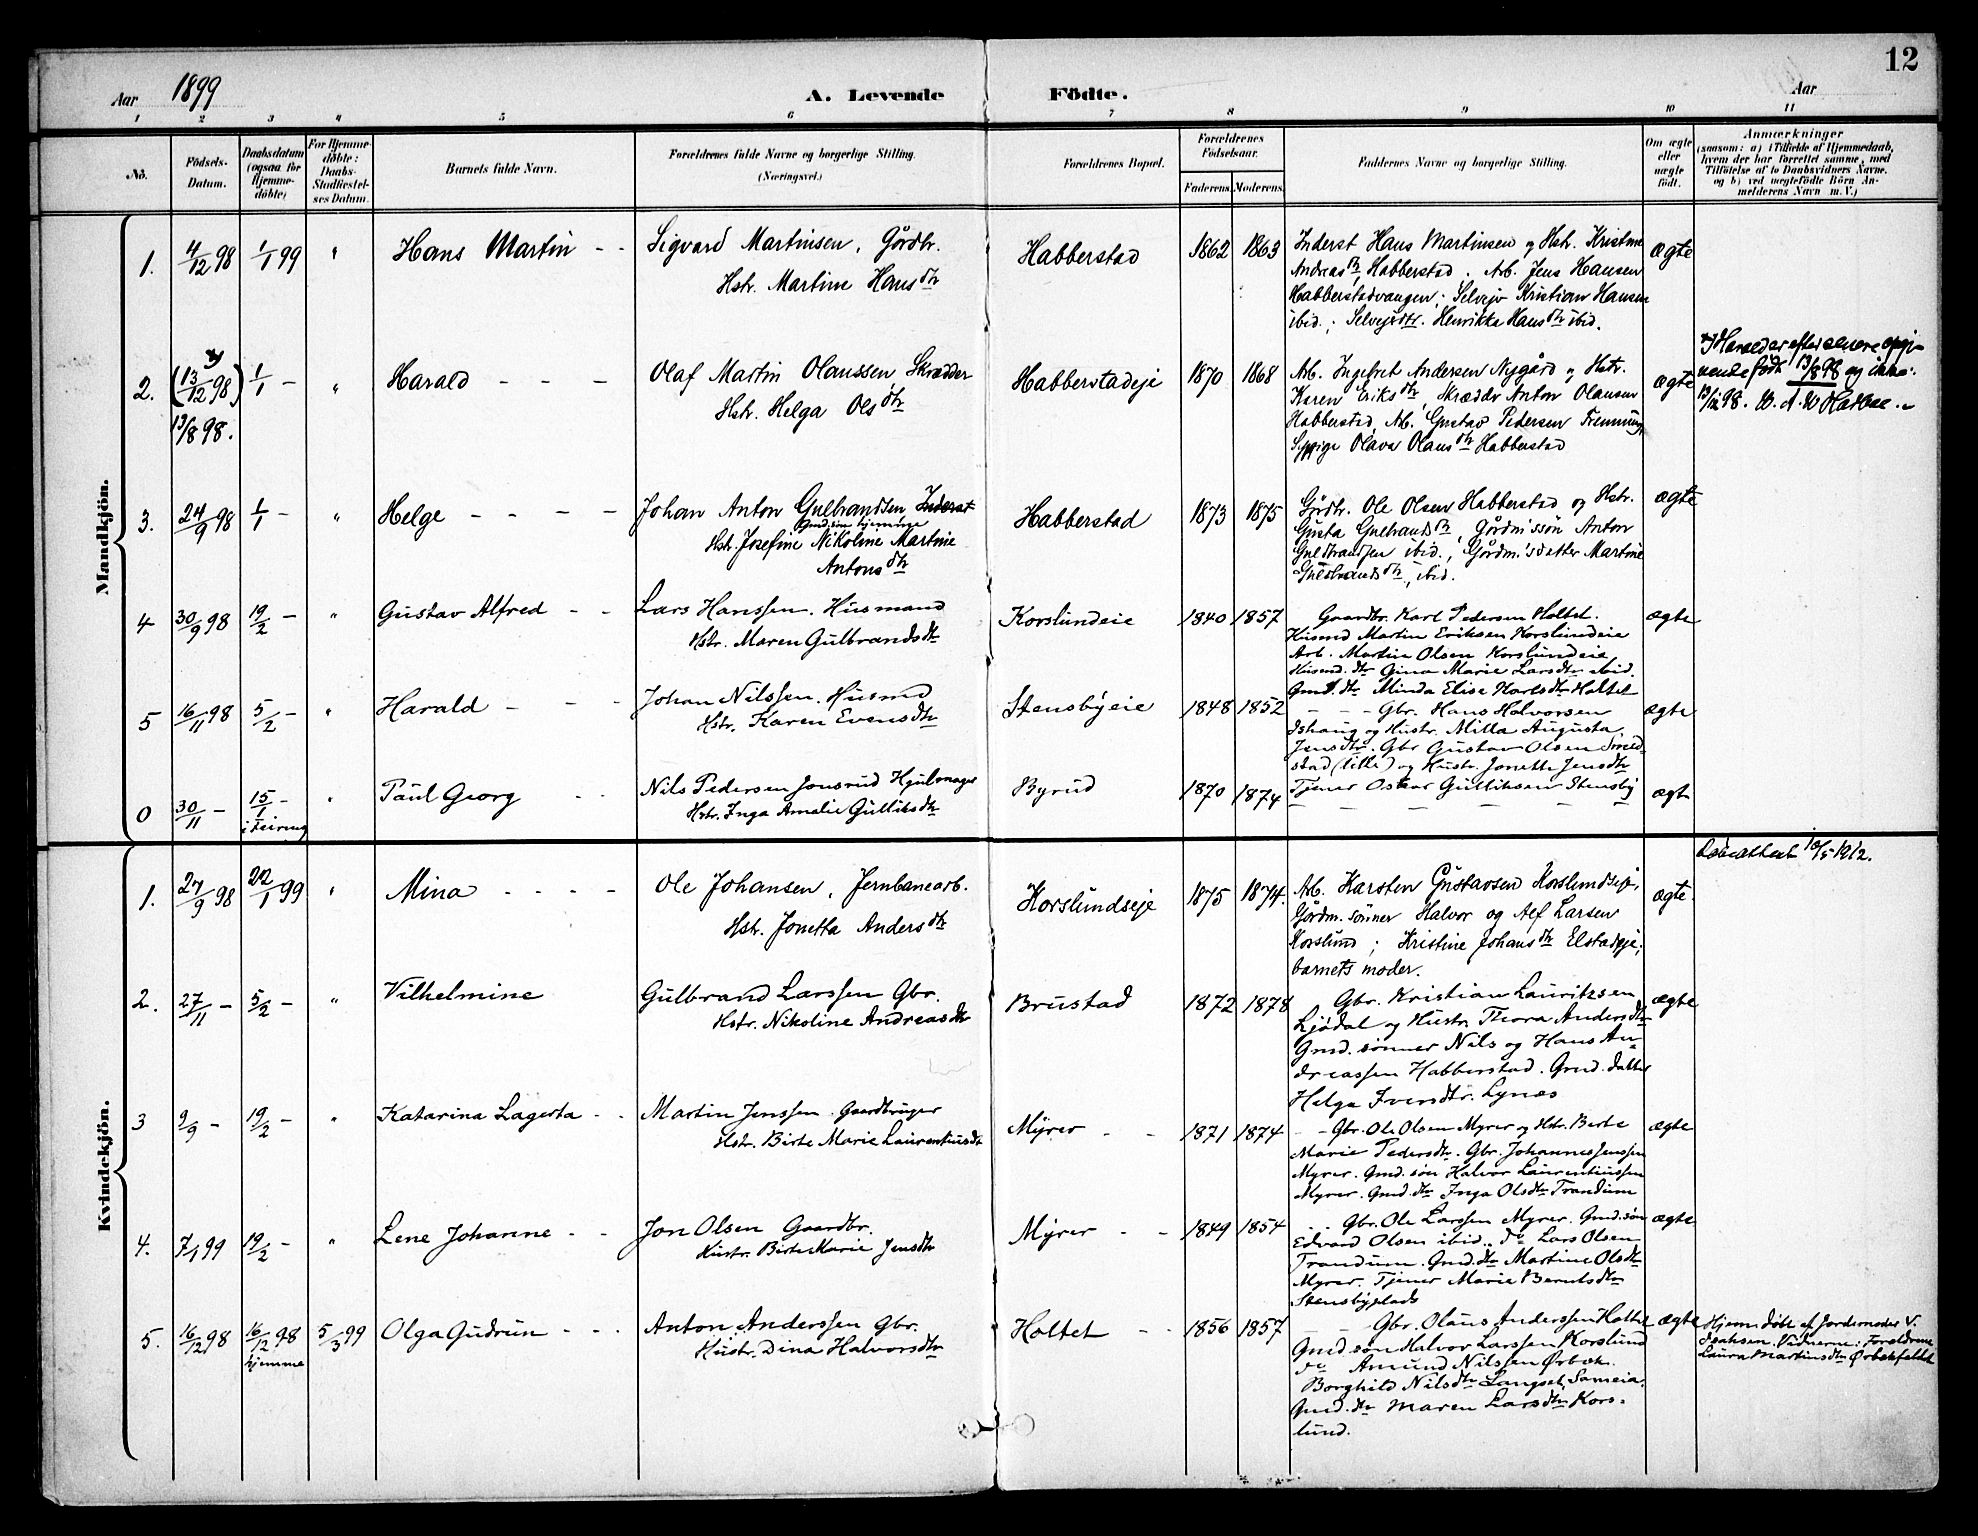 12
Aar 1899 A. Levende Födte. Aar
1 2 3 4 5 6 7 8 9 10 11
No.
Födsels-Datum.
Daabsdatum (ogsaa for Hjemme-döbte)
For Hjemme-döbte: Daabs-Stadfæstel-ses Datum.
Barnets fulde Navn.
Forældrenes fulde Navne og borgerlige Stilling.
(Næringsvei.)
Forældrenes Bopæl.
Forældrenes Födselsaar.
Faderens. Moderens.
Faddernes Navne og borgerlige Stilling.
Om ægte eller uægte födt.
Anmærkninger
(saasom: a) i Tilfælde af Hjemmedaab,
hvem der har forrettet samme, med
Tilföielse af to Daabsvidners Navne.
og b) ved uægtefödte Börn An-
melderens Navn m. V.)
Mandkjön.
1. 4/12 98 1/1 99 " Hans Martin - - Sigvard Martinsen, Gårdbr. Habberstad 1862 1863 Inderst Hans Martinsen og Hstr. Kristine ægte
Hstr. Martine Hansdtr
Andreasdtr, Habberstad. Arb. Jens Hansen
Habberstadvangen; Selvejer Kristian Hansen
ibid.; Selvejerdtr. Henrikka Hansdtr ibid.
2. (13/12 98) 1/1 - " Harald - - - Olaf Martin Olaussen, Skrædder Habberstadeje 1870 1868 Arb. Ingebret Andersen Nygård og Hstr. ægte
13/8 98.
Hstr. Helga Olsdtr
Karen Eriksdtr, Skrædder Anton Olaussen
Habberstad, Arb. Gustav Pedersen
Sypige Olava Olausdtr Habberstad
Harald er efter senere opgi-
vende født 13/8 98 og ikke
13/12 98.
3. 24/9 98 1/1 - " Helge - - - - Johan Anton Gulbrandsen Inderst Habberstad 1873 1875 Gårdbr. Ole Olsen Habberstad og Hstr. ægte
Gmd.søn hjemme
Hstr. Josefine Nikoline Martine
Antonsdtr
Gusta Gulbrandsdtr, Gårdm.'søn Anton
Gulbrandsen ibid., Gårdm.'sdatter Martine
Gulbrandsdtr, ibid.
4 30/9 98 19/2 - " Gustav Alfred - - Lars Hanssen. Husmand Korslundeie 1840 1857 Gaardbr. Karl Pedersen Holtet. ægte
Hstr. Maren Gulbrandsdtr
Husmd Martin Eriksen Korslundeie
Arb. Martin Olsen Korslundeie
Husmd.dtr Gina Marie Larsdtr ibid.
Gmd.dtr Minda Elise Karlsdtr Holtet
5 16/11 98 5/2 - " Harald - - - Johan Nilssen. Husmd Stensbyeie 1848 1852 - - - Gbr. Hans Halvorsen ægte
Hstr. Karen Evensdtr
Ishaug og Hustr. Milla Augusta
Jensdtr. Gbr Gustav Olsen Smed-
stad (lille) og Hustr. Jonette Jensdtr
0 30/11 - 15/1 - " Paul Georg - - Nils Pedersen Jonsrud Hjulmager Byrud 1870 1874 Tjener Oskar Gulliksen Stensby ægte
i Feiring
Hstr. Inga Amalie Gulliksdtr
Kvindekjön.
Daabsattest 10/5 1912.
1. 27/9 98 22/1 99 " Mina - - - - Ole Johansen, Jernbanearb. Korslundseje 1875 1874. Arb. Karsten Gustavsen Korslundseje, ægte.
Hstr. Jonetta Andersdtr
Gårdm.sønner Halvor og Alf Larsen
Korslund; Kristine Johansdtr Elstadeje;
barnets moder.
2. 27/11 - 5/2 - " Vilhelmine Gulbrand Larssen Gbr. Brustad 1872 1878 Gbr. Kristian Lauritzsen ægte
Hstr. Nikoline Andreasdtr
Ljødal og Hustr Thora Andersdtr
Gmd.sønner Nils og Hans An-
dreassen Habberstad. Gmd.datter
Helga Ivensdtr. Lynæs
3 9/9 - 19/2 - " Katarina Lagerta - - Martin Jenssen. Gaardbruger Myrer - - 1871 1874 - - Gbr. Ole Olsen Myrer og Hstr. Berte ægte
Hstr. Birte Marie Laurentiusdtr
Marie Pedersdtr. Gbr. Johannes Jenssen
Myrer. Gmd.søn Halvor Laurentiussen
Myrer. Gmd.dtr Inga Olsdtr Trandum
4. 7/1 99 19/2 - " Lene Johanne - - Jon Olsen Gaardbr. Myrer - - 1849 1854 - - Gbr. Ole Larssen Myrer. Gmd.søn ægte
Hustr. Birte Marie Jensdtr
Edvard Olsen ibid.. do Lars Olsen
Trandum. Gmd.dtr Martine Olsdtr
Myrer. Tjener Marie Berntsdtr
Stensbyplads
5. 16/12 98 16/12 98 5/3 99 Olga Gudrun - - - Anton Anderssen Gbr. Holtet - - 1856 1857 Gbr. Olaus Anderssen Holtet ægte
hjemme
Hustr. Dina Halvorsdtr
Gmd.søn Halvor Larssen Korslund
do Amund Nilssen Ørbæk.
Borghild Nilsdtr Langset, Sameia.
Gmd.dtr Maren Larsdtr Kors-
lund.
Hjemmedøbt af Jordemoder V.
Isaksen. Vidnerne: Forældrene
Laura Martinsdtr Ørbækfeldet